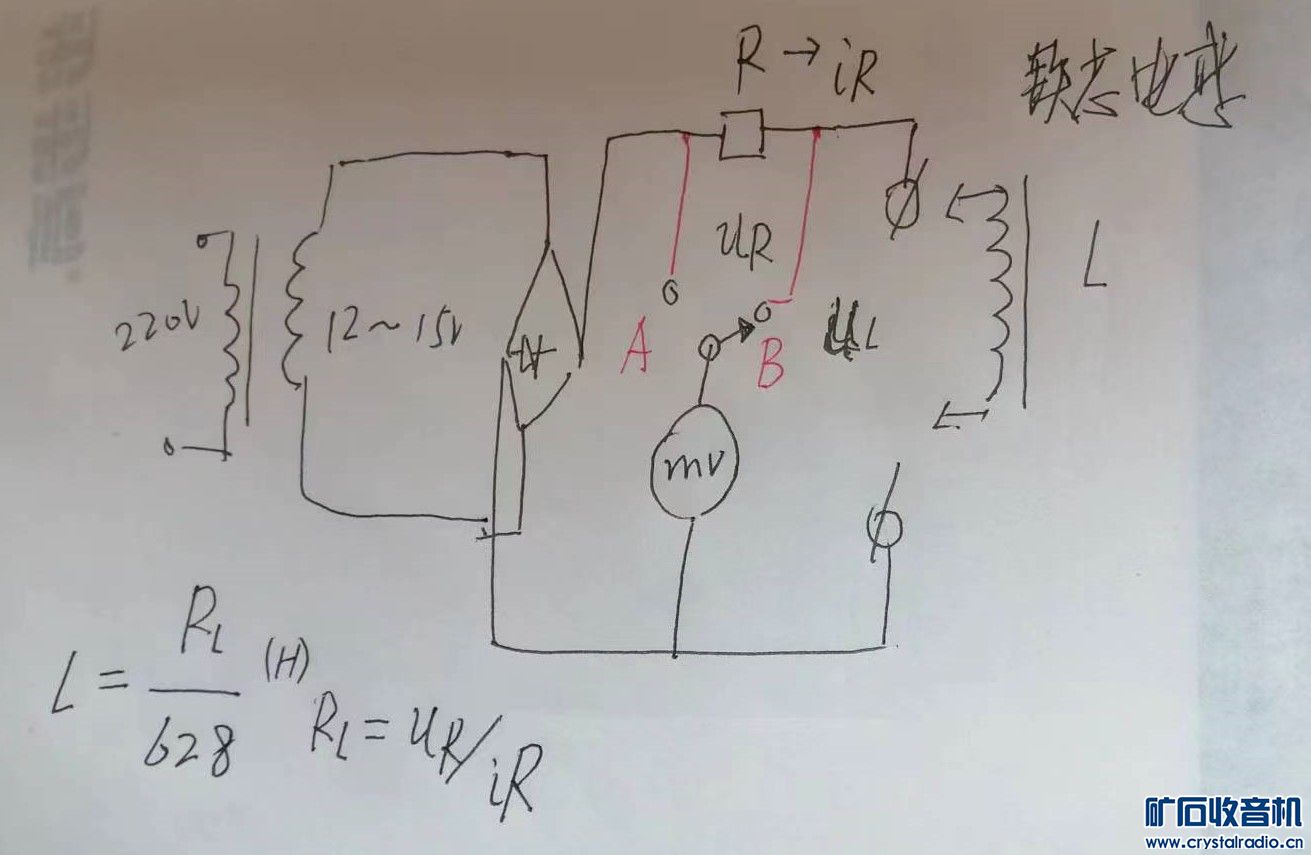 R → iR
铁芯电感
220V
12~15V
uR
A
B
uL
L
mV
L = RL / 628 (H)
RL = uR/iR
矿石收音机
www.crystalradio.cn